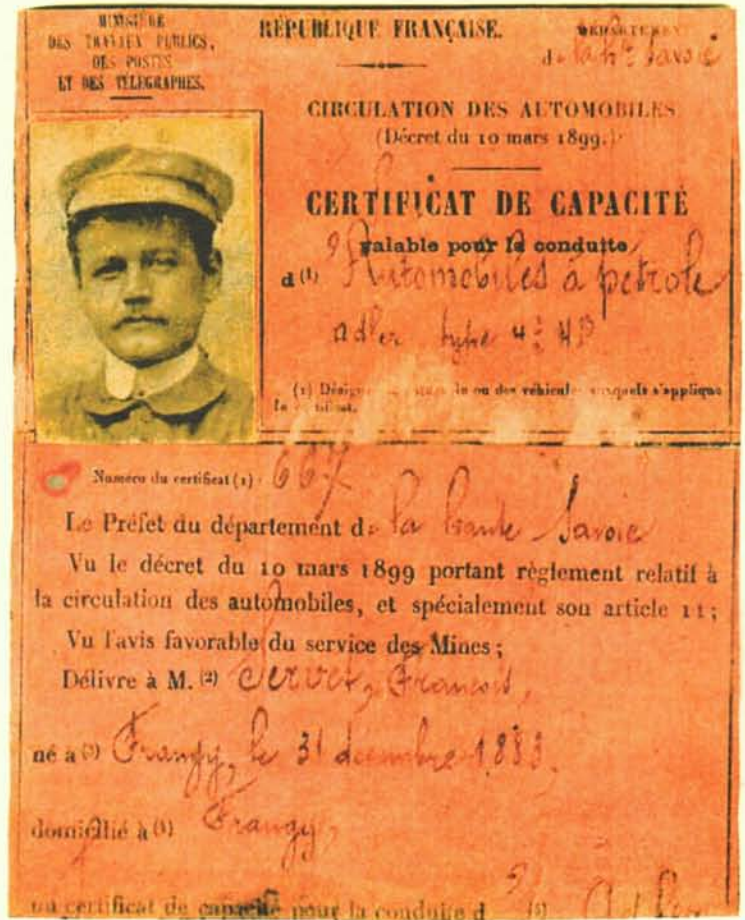 MINISTÈRE
DES TRAVAUX PUBLICS,
DES POSTES
ET DES TÉLÉGRAPHES.
RÉPUBLIQUE FRANÇAISE.
DÉPARTEMENT
d la Hte Savoie
CIRCULATION DES AUTOMOBILES
(Décret du 10 mars 1899.)
CERTIFICAT DE CAPACITÉ
valable pour la conduite
d (1) Automobiles à pétrole
Adler type 4
(1) Désign ou des véhicule auxquels s'applique
le certificat.
Numéro du certificat (1) 667
Le Préfet du département de la haute Savoie
Vu le décret du 10 mars 1899 portant règlement relatif à
la circulation des automobiles, et spécialement son article 11;
Vu l'avis favorable du service des Mines;
Délivre à M. (2) Servet, François,
né à (3) Frangy, le 31 décembre 1883.
domicilié à (4) Frangy,
un certificat de capacité pour la conduite d (5)